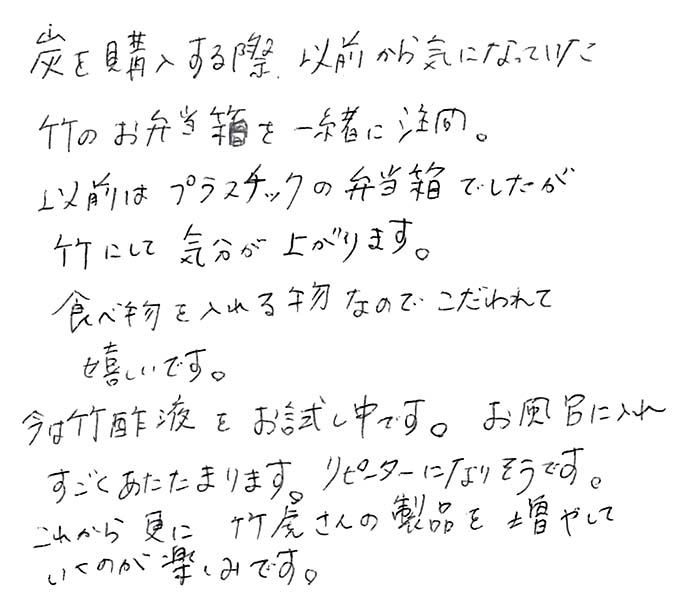 炭を購入する際、以前から気になっていた
竹のお弁当箱を一緒に注門。
以前はプラスチックの弁当箱でしたが
竹にして気分が上がります。
食べ物を入れる物なのでこだわれて
嬉しいです。
今は竹酢液をお試し中です。お風呂に入れ
すごくあたたまります。リピーターになりそうです。
これから更に竹虎さんの製品を増やして
いくのが楽しみです。